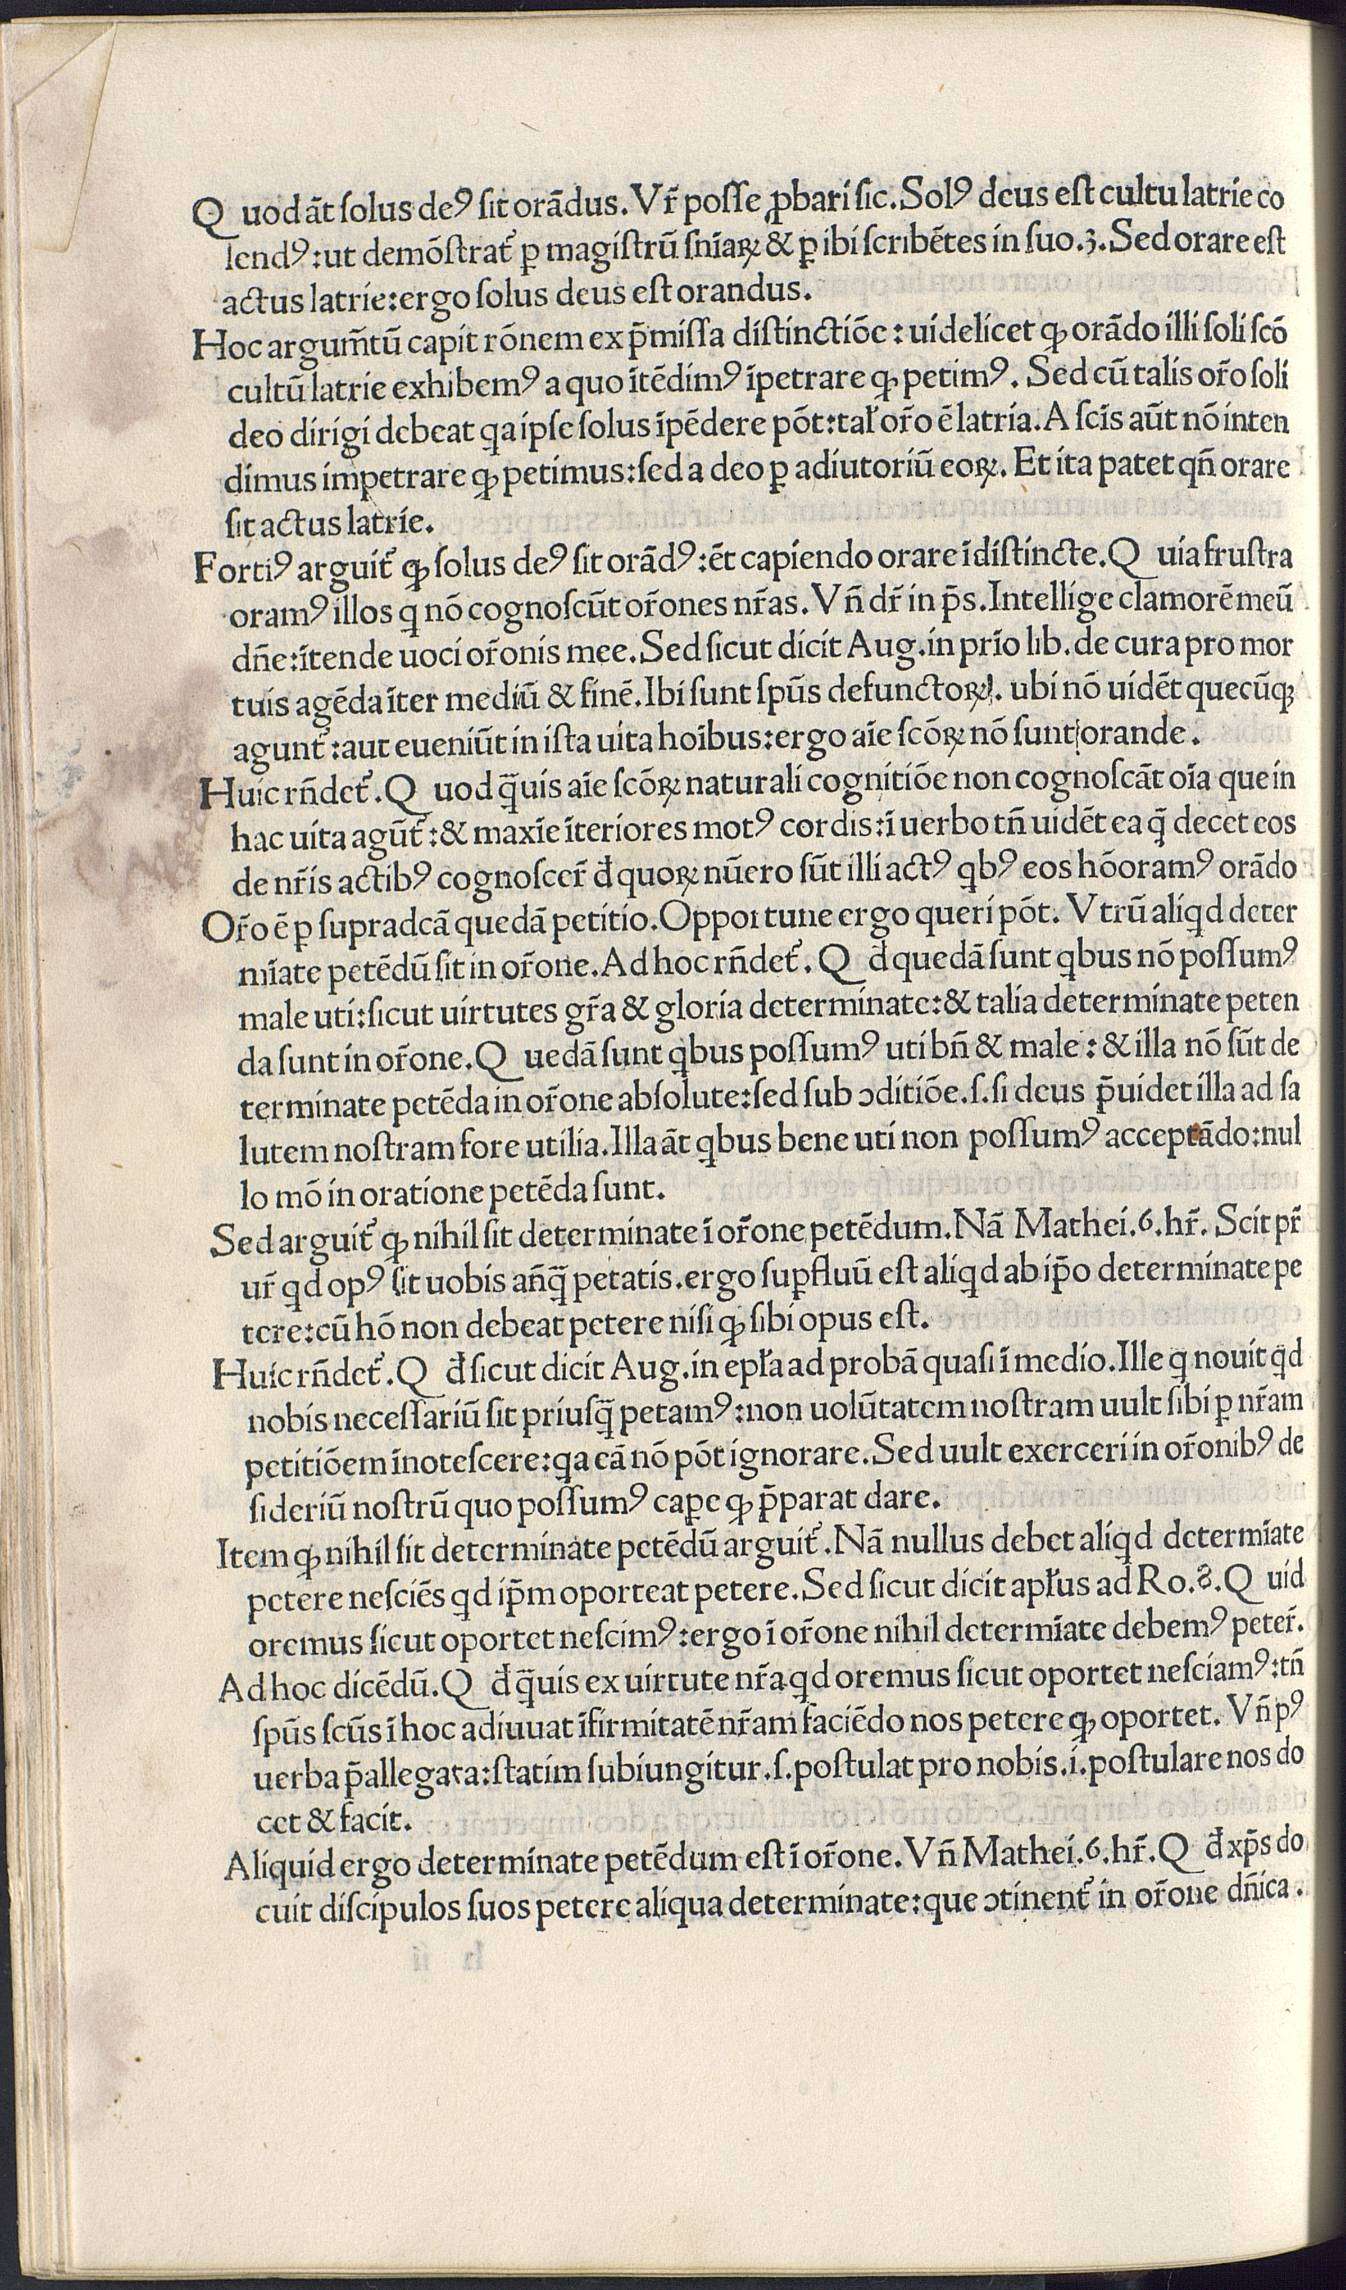 Q uod āt ſolus deꝰ ſit orādus. Vr̄ poſſe ꝓbari ſic. Solꝰ deus eſt cultu latrie co
lendꝰ: ut demōſtrat᷑ ꝑ magiſtrū ſnīaꝝ & ꝑ ibi ſcribētes in ſuo.3. Sed orare eſt
actus latrie: ergo ſolus deus eſt orandus.
Hoc argum̄tū capit rōnem ex p̄miſſa diſtinctiōe: uidelicet ꝙ orādo illi ſoli ſcō
cultū latrie exhibemꝰ a quo ītēdimꝰ īpetrare ꝙ petimꝰ. Sed cū talis or̄o ſoli
deo dirigi debeat qa ipſe ſolus īpēdere pōt: tał or̄o ē latria. A ſcīs aūt nō inten
dimus impetrare ꝙ petimus: ſed a deo ꝑ adiutoriū eoꝝ. Et ita patet qn̄ orare
ſit actus latrie.
Fortiꝰ arguit᷑ ꝙ ſolus deꝰ ſit orādꝰ: ēt capiendo orare īdiſtincte. Q uia fruſtra
oramꝰ illos q nō cognoſcūt or̄ones nr̄as. Vn̄ dr̄ in p̄s. Intellige clamorē meū
dn̄e: ītende uoci or̄onis mee. Sed ſicut dicit Aug. in prīo lib. de cura pro mor
tuis agēda īter mediū & finē. Ibi ſunt ſpūs defunctoꝝ. ubi nō uidēt quecūqꝫ
agunt᷑: aut eueniūt in iſta uita hoībus: ergo aīe ſcōꝝ nō ſunt orande.
Huic rn̄det᷑. Q uod q̄uis aīe ſcōꝝ naturali cognitiōe non cognoſcāt oīa que in
hac uita agūt᷑: & maxīe īteriores motꝰ cordis: ī uerbo tn̄ uidēt ea q̄ decet eos
de nr̄is actibꝰ cognoſcer̄ đ quoꝝ nūero ſūt illi actꝰ qbꝰ eos hōoramꝰ orādo
Or̄o ē ꝑ ſupradcā quedā petitio. Opportune ergo queri pōt. Vtrū aliqd deter
mīate petēdū ſit in or̄one. Ad hoc rn̄det᷑. Q đ quedā ſunt qbus nō poſſumꝰ
male uti: ſicut uirtutes gr̄a & gloria determinate: & talia determinate peten
da ſunt in or̄one. Q uedā ſunt qbus poſſumꝰ uti bn̄ & male: & illa nō ſūt de
terminate petēda in or̄one abſolute: ſed ſub ↄditiōe. ſ. ſi deus p̄uidet illa ad ſa
lutem noſtram fore utilia. Illa āt qbus bene uti non poſſumꝰ acceptādo: nul
lo mō in oratione petēda ſunt.
Sed arguit᷑ ꝙ nihil ſit determinate ī or̄one petēdum. Nā Mathei.6. hr̄. Scit pr̄
ur̄ qd opꝰ ſit uobis an̄q̄ petatis. ergo ſuꝑfluū eſt aliqd ab ip̄o determinate pe
tere: cū hō non debeat petere niſi ꝙ ſibi opus eſt.
Huic rn̄det᷑. Q đ ſicut dicit Aug. in epła ad probā quaſi ī medio. Ille q nouit qd
nobis neceſſariū ſit priuſq̄ petamꝰ: non uolūtatem noſtram uult ſibi ꝑ nr̄am
petitiōem īnoteſcere: qa eā nō pōt ignorare. Sed uult exerceri in or̄onibꝰ de
ſideriū noſtrū quo poſſumꝰ caꝑe ꝙ p̄parat dare.
Item ꝙ nihil ſit determinate petēdū arguit᷑. Nā nullus debet aliqd determīate
petere neſciēs qd ip̄m oporteat petere. Sed ſicut dicit apłus ad Ro.8. Q uid
oremus ſicut oportet neſcimꝰ: ergo ī or̄one nihil determīate debemꝰ peter̄.
Ad hoc dicēdū. Q đ q̄uis ex uirtute nr̄a qd oremus ſicut oportet neſciamꝰ: tn̄
ſpūs ſcūs ī hoc adiuuat īfirmitatē nr̄am faciēdo nos petere ꝙ oportet. Vn̄ pꝰ
uerba p̄allegata: ſtatim ſubiungitur. ſ. poſtulat pro nobis. i. poſtulare nos do
cet & facit.
Aliquid ergo determinate petēdum eſt ī or̄one. Vn̄ Mathei.6. hr̄. Q đ xp̄s do
cuit diſcipulos ſuos petere aliqua determinate: que ↄtinent᷑ in or̄one dn̄ica.